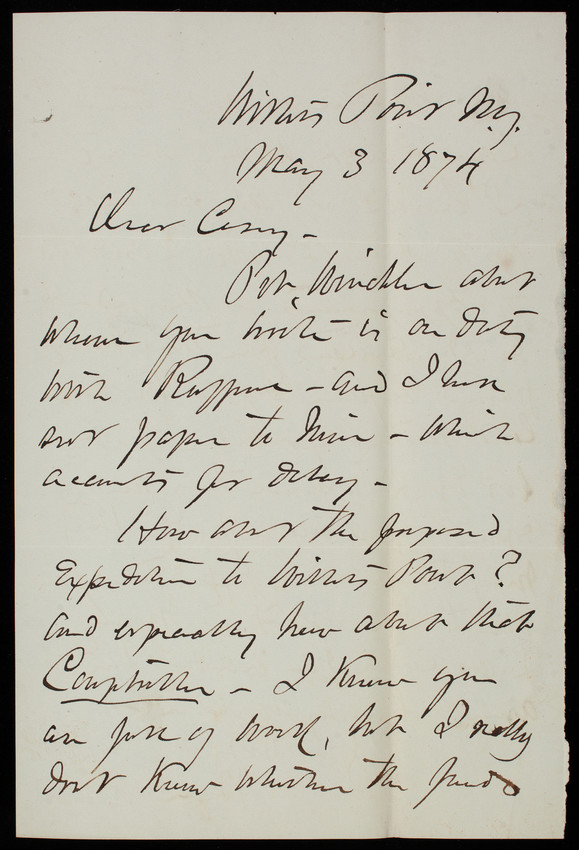 Willets Point N.Y.
May 3 1874
Dear Casey -
Pvt. Winckler about
whom you write is on duty
with - and I have
sent paper to him - which
accounts for delay -
How about the proposed
Expedition to Willets Point?
and especially how about that
Comptroller - I know you
are full of work, but I really
don't know whether the funds